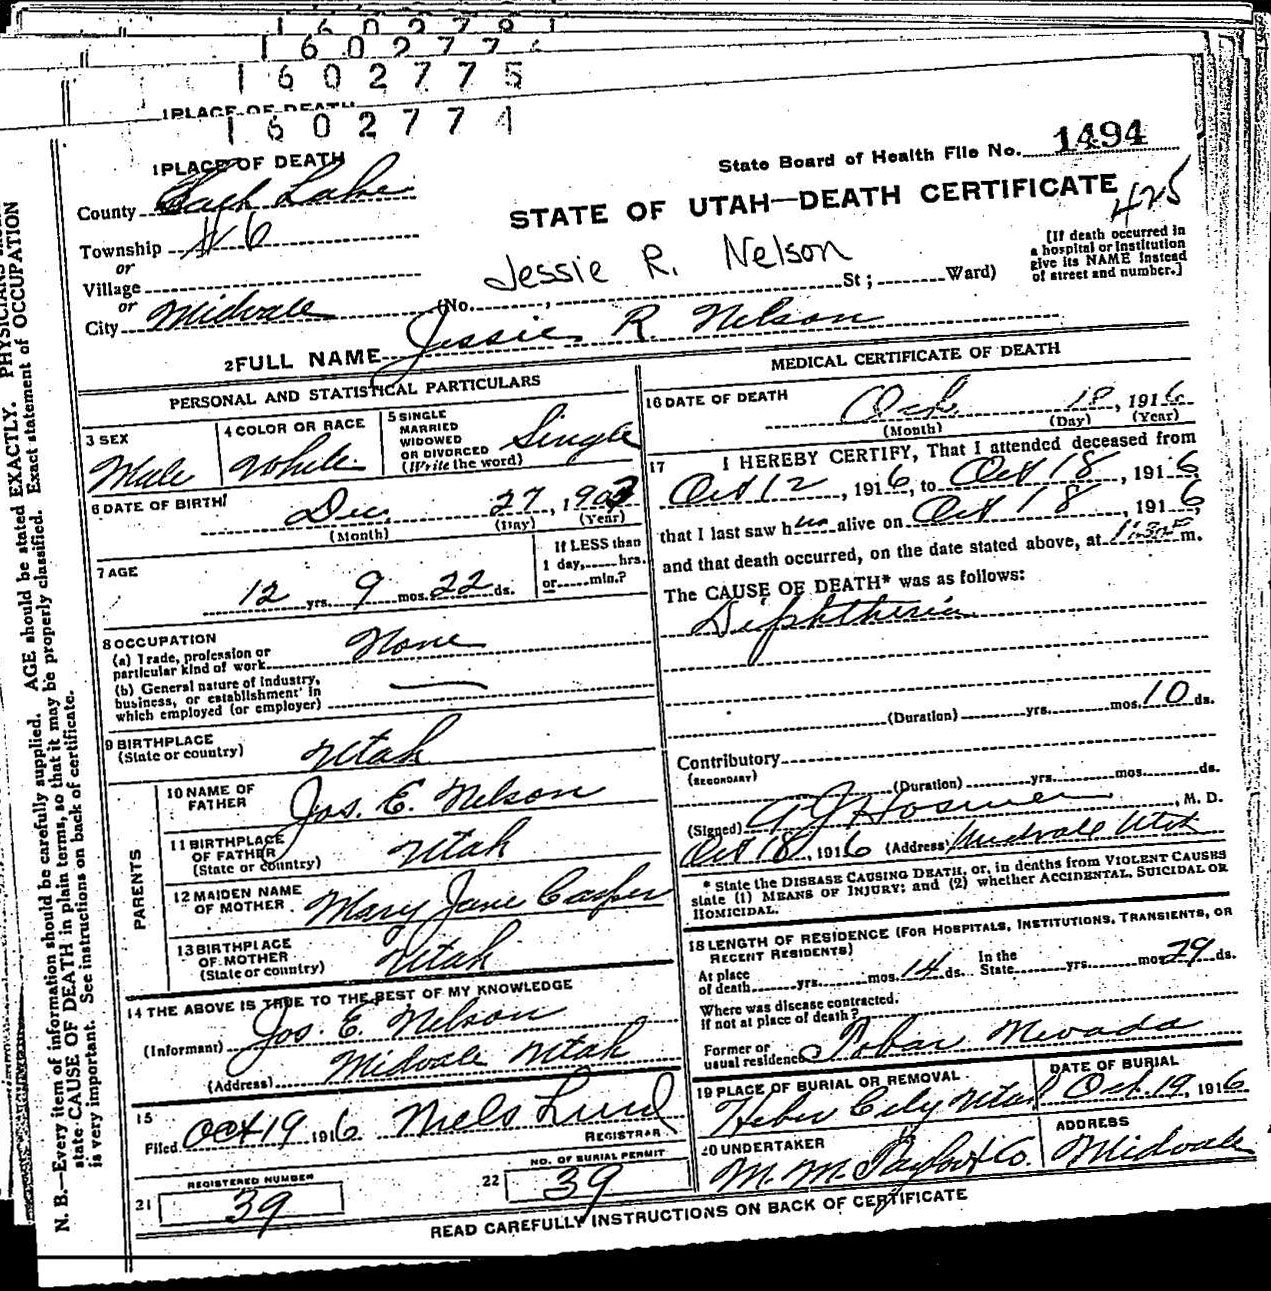 1 6 0 2 7 7 5
1 PLACE OF DEATH
1 6 0 2 7 7 4
1 PLACE OF DEATH
State Board of Health File No. 1494
County Salt Lake
STATE OF UTAH—DEATH CERTIFICATE
425
Township # 6
or
Village
or
City Midvale
Jessie R. Nelson
(No. , St; Ward)
[If death occurred in
a hospital or institution
give its NAME instead
of street and number.]
2 FULL NAME Jessie R. Nelson
PERSONAL AND STATISTICAL PARTICULARS
3 SEX
Male
4 COLOR OR RACE
White
5 SINGLE
MARRIED
WIDOWED
OR DIVORCED
(Write the word)
Single
6 DATE OF BIRTH
Dec 27, 1903
(Month) (Day) (Year)
7 AGE
12 yrs. 9 mos. 22 ds.
If LESS than
1 day, hrs.
or min.?
8 OCCUPATION
(a) Trade, profession or
particular kind of work None
(b) General nature of industry,
business, or establishment in
which employed (or employer) —
9 BIRTHPLACE
(State or country) Utah
PARENTS
10 NAME OF
FATHER Jos. E. Nelson
11 BIRTHPLACE
OF FATHER
(State or country) Utah
12 MAIDEN NAME
OF MOTHER Mary Jane Casper
13 BIRTHPLACE
OF MOTHER
(State or country) Utah
14 THE ABOVE IS TRUE TO THE BEST OF MY KNOWLEDGE
(Informant) Jos. E. Nelson
(Address) Midvale Utah
15
Filed Oct 19 1916 Niels Lind
REGISTRAR
21 REGISTERED NUMBER
39
22 NO. OF BURIAL PERMIT
39
MEDICAL CERTIFICATE OF DEATH
16 DATE OF DEATH
Oct. 18, 1916
(Month) (Day) (Year)
17 I HEREBY CERTIFY, That I attended deceased from
Oct 12, 1916, to Oct 18, 1916,
that I last saw him alive on Oct 18, 1916,
and that death occurred, on the date stated above, at m.
The CAUSE OF DEATH* was as follows:
Diphtheria
(Duration) yrs. mos. 10 ds.
Contributory
(SECONDARY)
(Duration) yrs. mos. ds.
(Signed) , M. D.
Oct 18, 1916 (Address) Midvale Utah
* State the DISEASE CAUSING DEATH, or, in deaths from VIOLENT CAUSES
state (1) MEANS OF INJURY; and (2) whether ACCIDENTAL, SUICIDAL OR
HOMICIDAL.
18 LENGTH OF RESIDENCE (FOR HOSPITALS, INSTITUTIONS, TRANSIENTS, OR
RECENT RESIDENTS)
At place
of death yrs. mos. 14 ds.
In the
State yrs. mos. 29 ds.
Where was disease contracted,
if not at place of death?
Former or
usual residence Tobar Nevada
19 PLACE OF BURIAL OR REMOVAL
Heber City Utah
DATE OF BURIAL
Oct. 19, 1916
20 UNDERTAKER
ADDRESS
Midvale
READ CAREFULLY INSTRUCTIONS ON BACK OF CERTIFICATE
N. B.—Every item of information should be carefully supplied. AGE should be stated EXACTLY. PHYSICIANS should
state CAUSE OF DEATH in plain terms, so that it may be properly classified. Exact statement of OCCUPATION
is very important. See instructions on back of certificate.